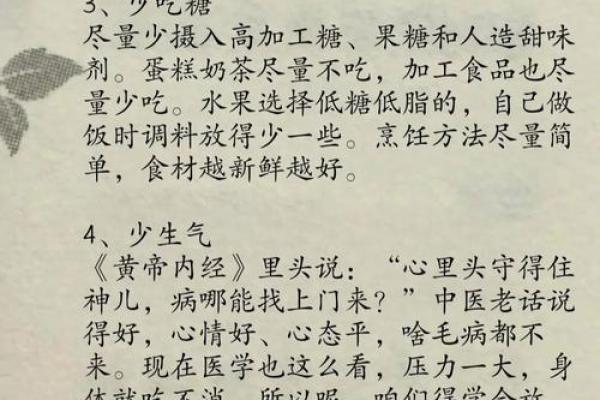 3、少吃糖
尽量少摄入高加工糖、果糖和人造甜味
剂。蛋糕奶茶尽量不吃，加工食品也尽
量少吃。水果选择低糖低脂的，自己做
饭时调料放得少一些。烹饪方法尽量简
单，食材越新鲜越好。
4、少生气
《黄帝内经》里头说：“心里头守得住
神儿，病哪能找上门来？”中医老话说
得好，心情好、心态平，啥毛病都不
来。现在医学也这么看，压力一大，身
体就吃不消。所以呢，咱们得学会放